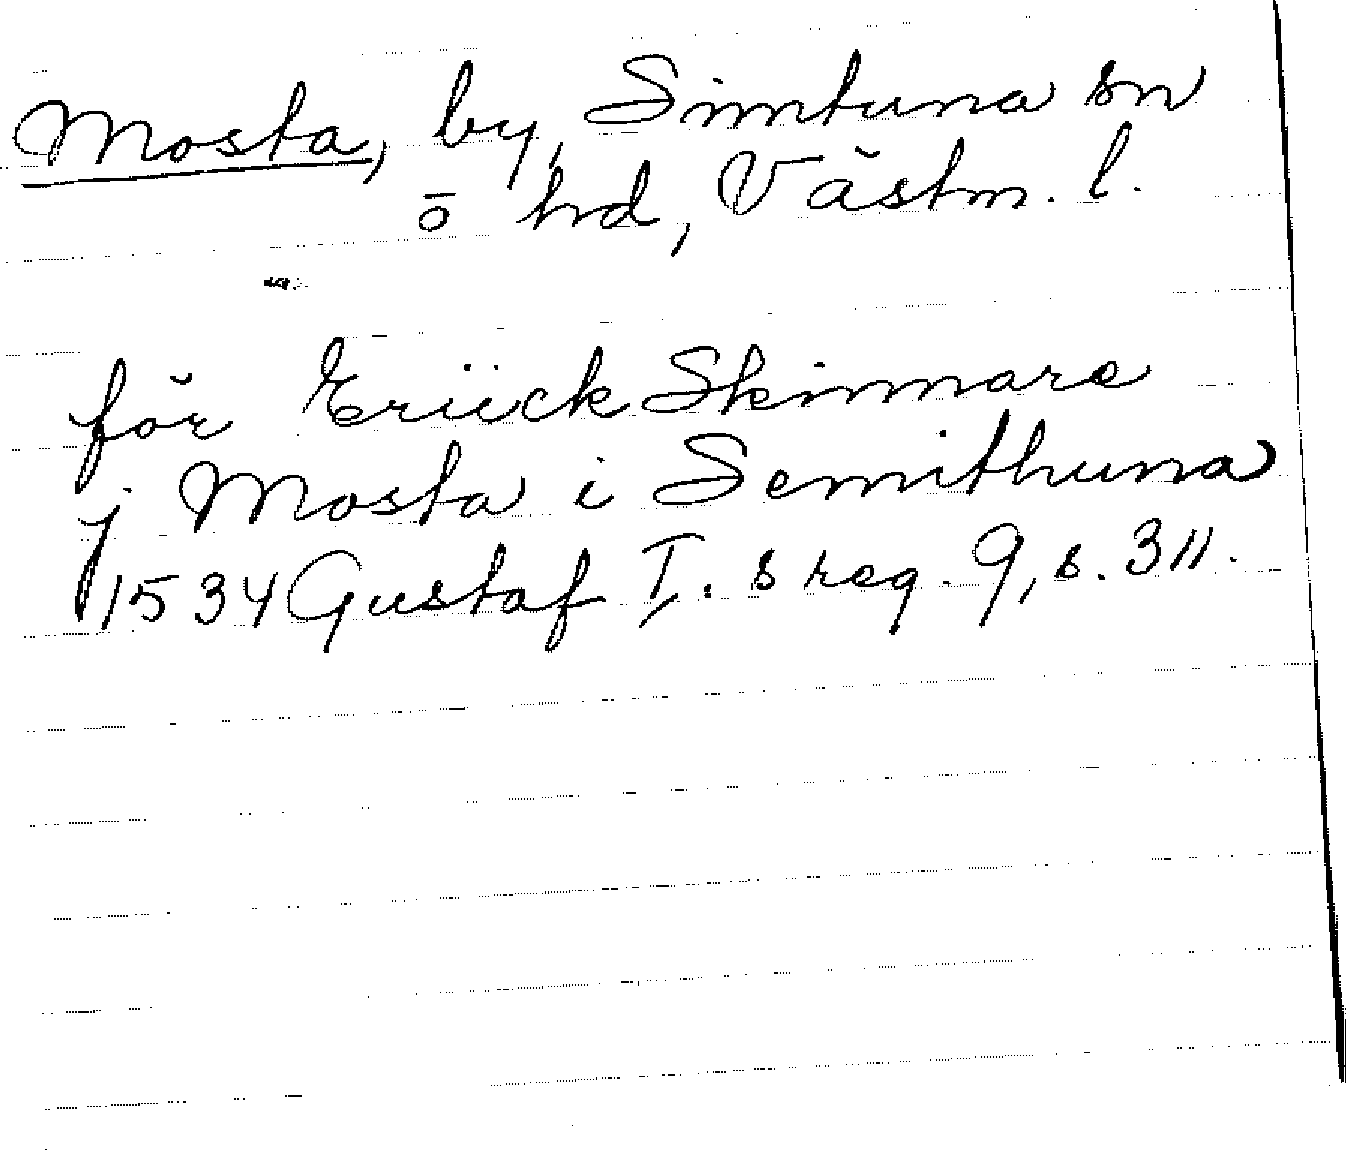 Mosta, by, Simtuna sn
o hd, Västm. l.
för Eriick Skinnare
j Mosta i Semithuna
1534 Gustaf I. s reg. 9, s. 311.